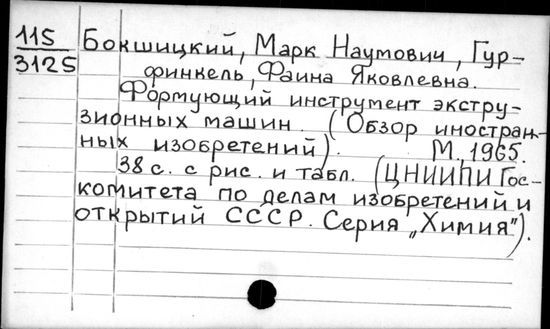 115
3125
Бокшицкий, Марк Наумович, Гур-
финкель, Фаина Яковлевна.
Формующий инструмент экстру-
зионных машин. (Обзор иностран-
ных изобретений). М., 1965.
38 с. с рис. и табл. (ЦНИИПИ Гос-
комитета по делам изобретений и
открытий СССР. Серия „Химия").